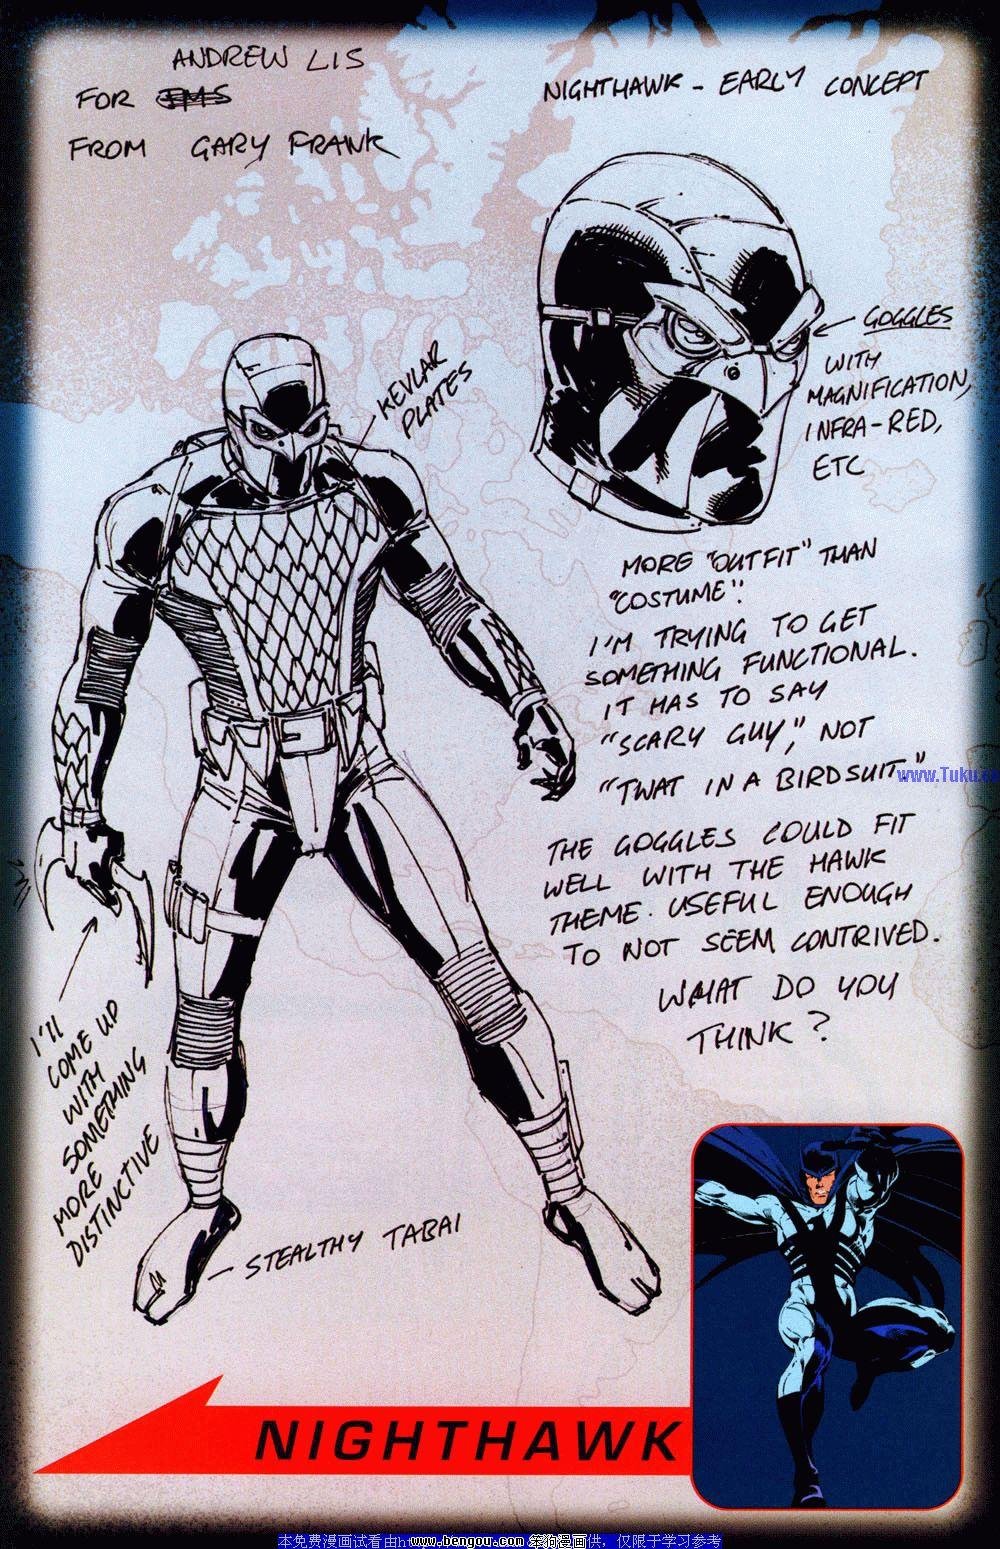 ANDREW LIS
FOR
FROM GARY FRANK
NIGHTHAWK - EARLY CONCEPT
GOGGLES
WITH
MAGNIFICATION,
INFRA-RED,
ETC
KEVLAR
PLATES
MORE "OUTFIT" THAN
"COSTUME".
I'M TRYING TO GET
SOMETHING FUNCTIONAL.
IT HAS TO SAY
"SCARY GUY," NOT
"TWAT IN A BIRDSUIT."
www.Tuku.cc
THE GOGGLES COULD FIT
WELL WITH THE HAWK
THEME. USEFUL ENOUGH
TO NOT SEEM CONTRIVED.
WHAT DO YOU
THINK?
I'll
COME UP
WITH
SOMETHING
MORE
DISTINCTIVE
STEALTHY TABAI
NIGHTHAWK
本免费漫画试看由 www.bengou.com 笨狗漫画供，仅限于学习参考